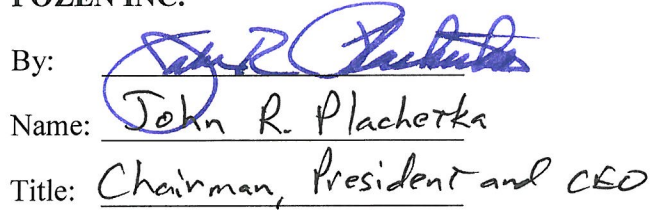 POZEN INC.
By: John R. Plachetka
Name: John R. Plachetka
Title: Chairman, President and CEO